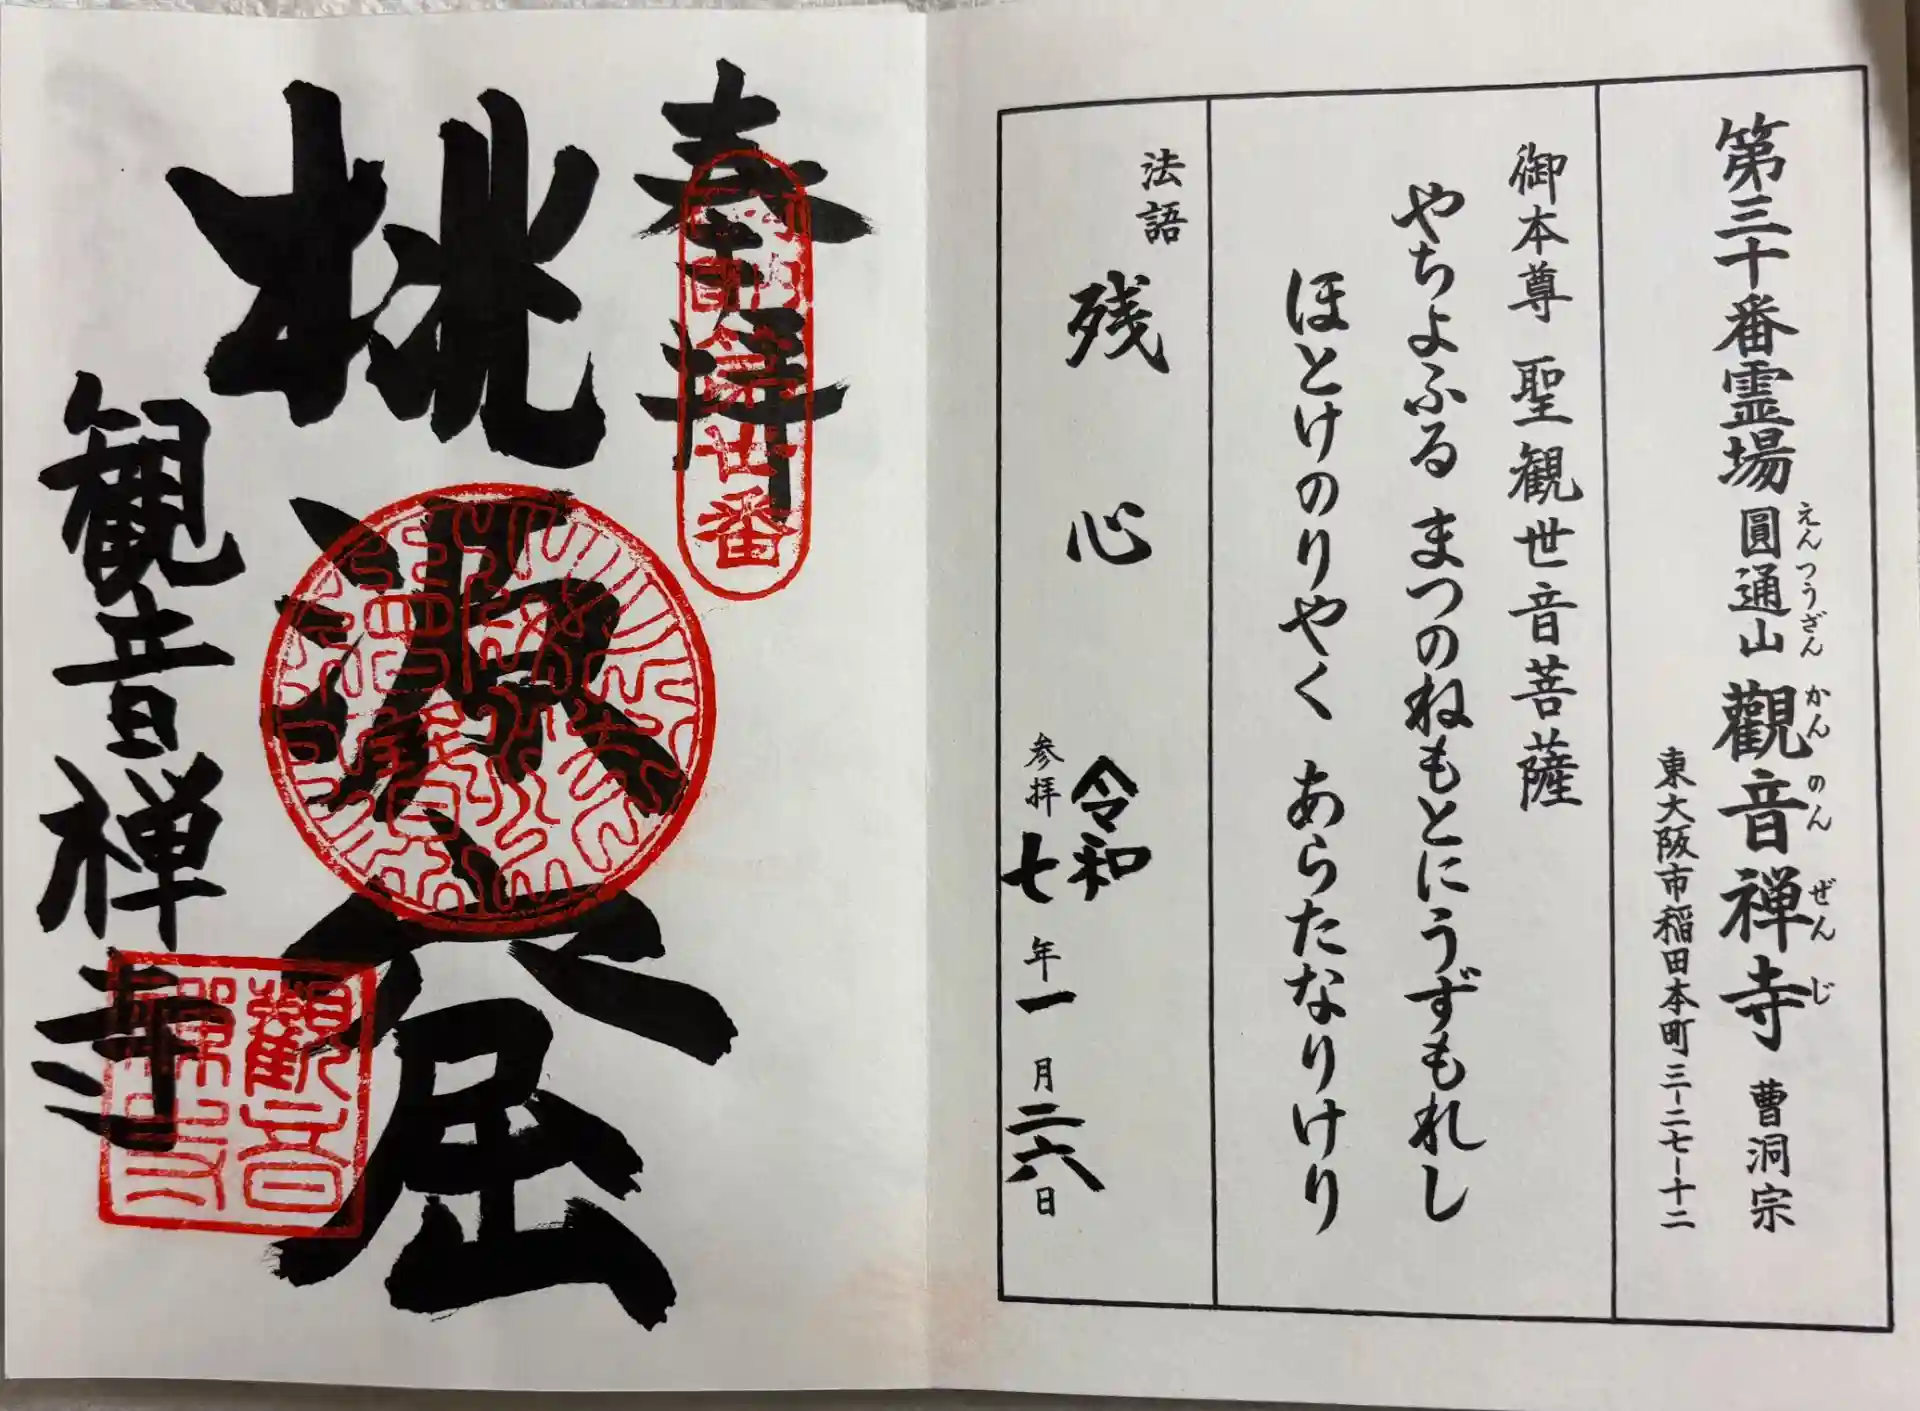 第三十番霊場 圓通山 觀音禅寺 曹洞宗
えんつうざん かんのんぜんじ
東大阪市稲田本町三-二七-十二
御本尊 聖観世音菩薩
やちよふる まつのねもとにうずもれし
ほとけのりやく あらたなりけり
法語 残心
令和
参拝 七年一月二六日
奉拝
第卅番
桃源窟
観音禅寺
觀音禅寺